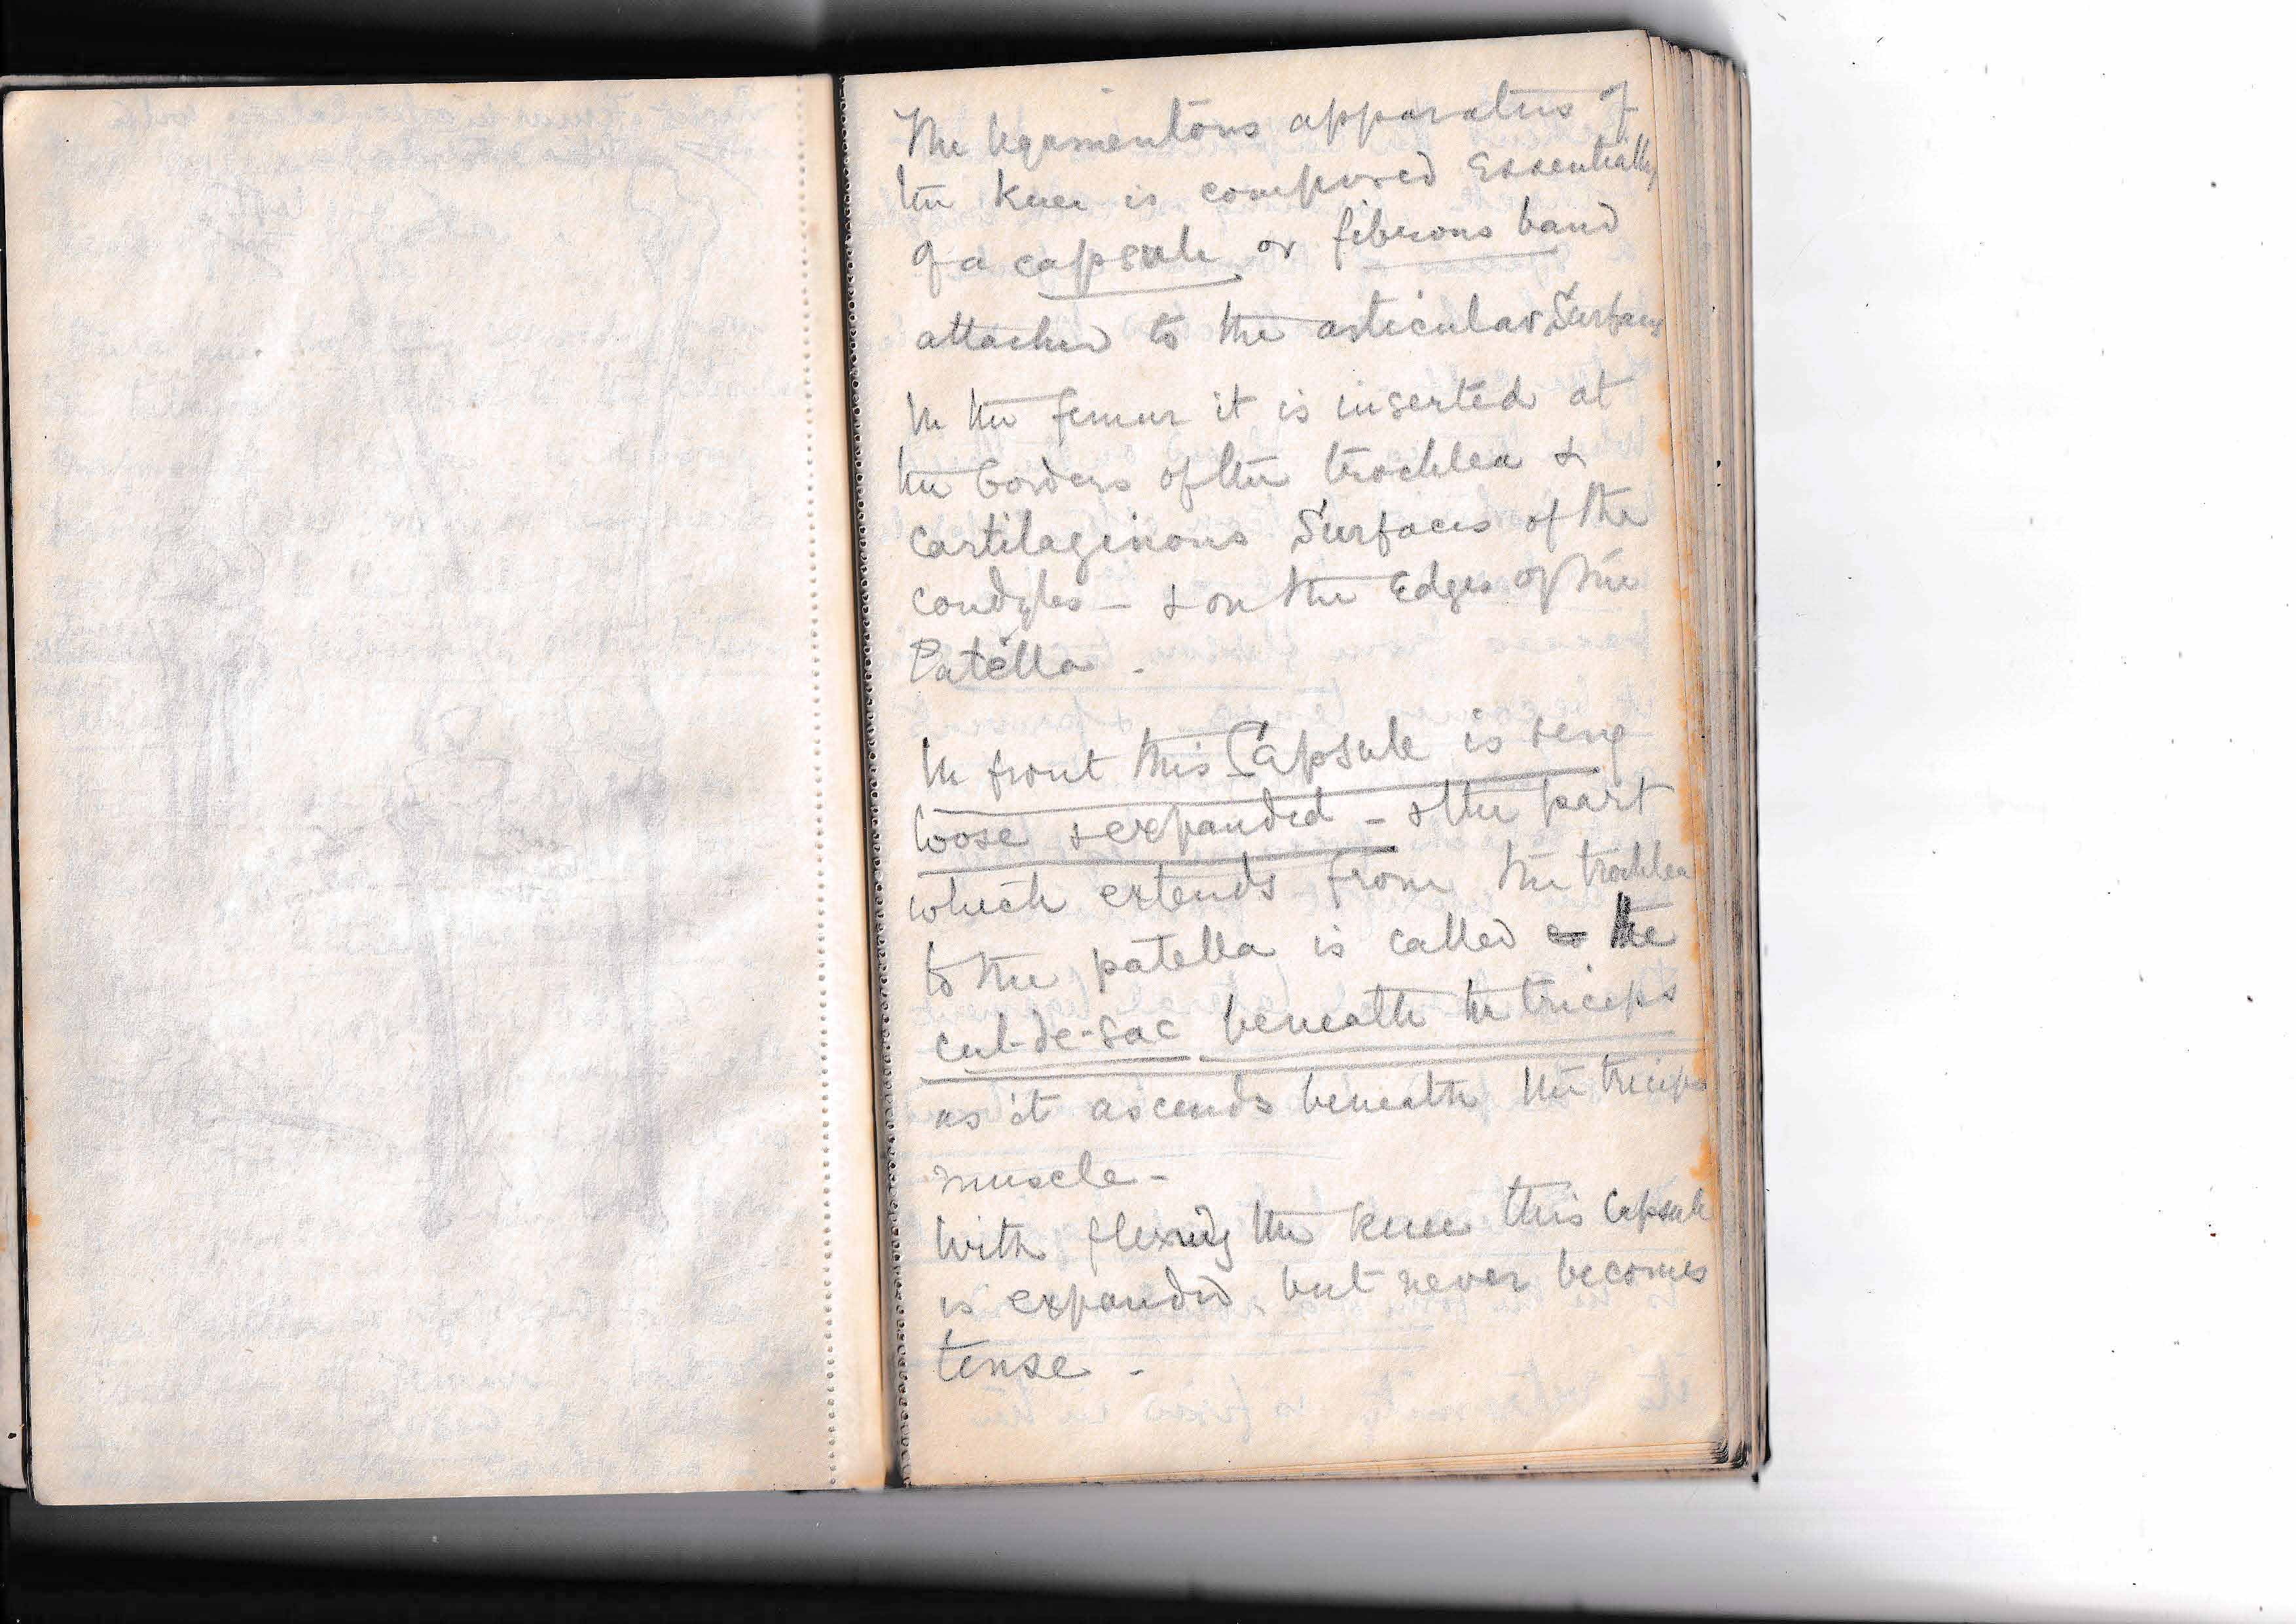 The ligamentous apparatus of
the knee is composed Essentially
of a capsule or fibrous band
attached to the articular Surfaces
In the femur it is inserted at
the borders of the trochlea &
cartilaginous Surfaces of the
condyles - & on the Edges of the
Patella -
In front this Capsule is very
loose & expanded - & the part
which extends from the trochlea
to the patella is called the
cul-de-sac beneath the triceps
as it ascends beneath the triceps
muscle -
With flexing the knee this Capsule
is expanded but never becomes
tense -